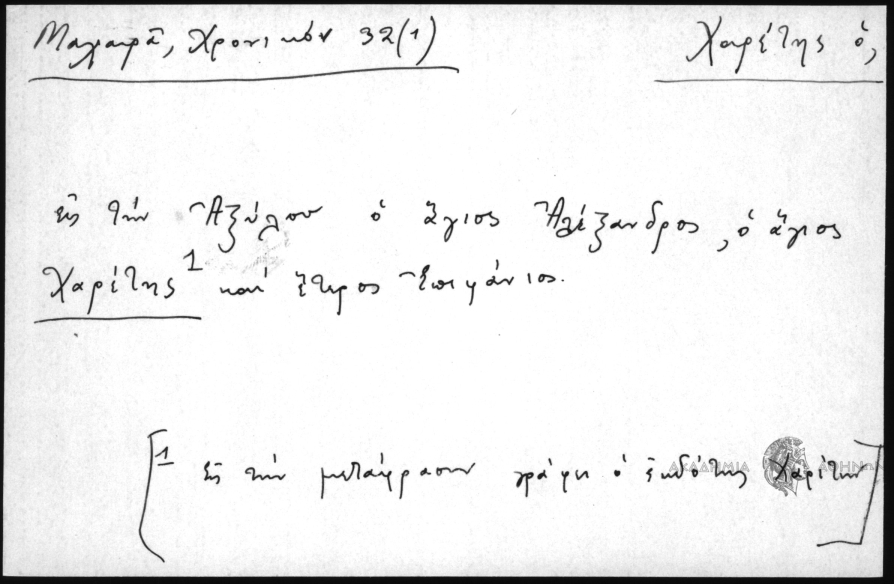 Μαχαιρᾶ, Χρονικόν 32(1)
Χαρέτης ὁ,
εἰς τὴν Ἀξύλου ὁ ἅγιος Ἀλέξανδρος, ὁ ἅγιος
Χαρέτης 1 καὶ ἕτερος Ἐπιφάνιος.
[1 Εἰς τὴν μετάφρασιν γράφει ὁ ἐκδότης Χαρίτων]
ΑΚΑΔΗΜΙΑ ΑΘΗΝΩΝ